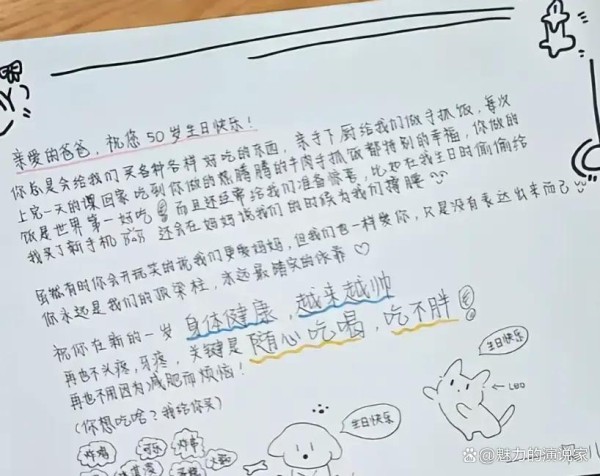 亲爱的爸爸，祝您50岁生日快乐！
你总是会给我们买各种各样好吃的东西，亲手下厨给我们做手抓饭，每次
上完一天的课回家吃到你做的热腾腾的牛肉手抓饭都特别的幸福，你做的
饭是世界第一好吃 而且还经常给我们准备惊喜，比如在我生日时偷偷给
我买了新手机 还会在妈妈说我们的时候为我们撑腰
虽然有时你会开玩笑的说我们更爱妈妈，但我们也一样爱你，只是没有表达出来而已
你永远是我们的顶梁柱，永远最踏实的依靠♡
祝你在新的一岁 身体健康，越来越帅
再也不头疼，牙疼，关键是 随心吃喝，吃不胖
再也不用因为减肥而烦恼！
（你想吃啥？我给你买）
生日快乐
←LEO
生日快乐
炸鸡
可乐
炸串
火锅
魅力的演说家